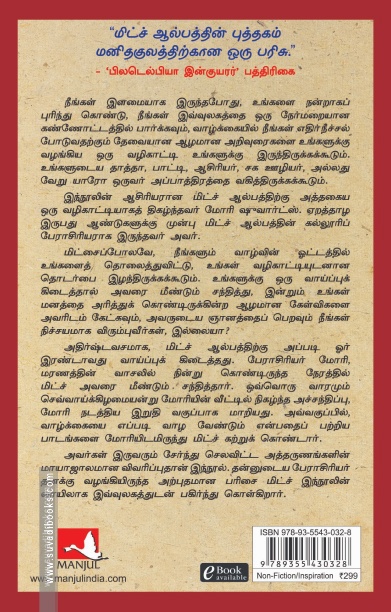 “மிட்ச் ஆல்பத்தின் புத்தகம்
மனிதகுலத்திற்கான ஒரு பரிசு.”
– ‘பிலடெல்பியா இன்குயரர்’ பத்திரிகை
நீங்கள் இளமையாக இருந்தபோது, உங்களை நன்றாகப்
புரிந்து கொண்டு, நீங்கள் இவ்வுலகத்தை ஒரு நேர்மறையான
கண்ணோட்டத்தில் பார்க்கவும், வாழ்க்கையில் நீங்கள் எதிர்நீச்சல்
போடுவதற்கும் தேவையான ஆழமான அறிவுரைகளை உங்களுக்கு
வழங்கிய ஒரு வழிகாட்டி உங்களுக்கு இருந்திருக்கக்கூடும்.
உங்களுடைய தாத்தா, பாட்டி, ஆசிரியர், சக ஊழியர், அல்லது
வேறு யாரோ ஒருவர் அப்பாத்திரத்தை வகித்திருக்கக்கூடும்.
இந்நூலின் ஆசிரியரான மிட்ச் ஆல்பத்திற்கு அத்தகைய
ஒரு வழிகாட்டியாகத் திகழ்ந்தவர் மோரி ஷுவார்ட்ஸ். ஏறத்தாழ
இருபது ஆண்டுகளுக்கு முன்பு மிட்ச் ஆல்பத்தின் கல்லூரிப்
பேராசிரியராக இருந்தவர் அவர்.
மிட்சைப்போலவே, நீங்களும் வாழ்வின் ஓட்டத்தில்
உங்களைத் தொலைத்துவிட்டு, உங்கள் வழிகாட்டியுடனான
தொடர்பை இழந்திருக்கக்கூடும். உங்களுக்கு ஒரு வாய்ப்புக்
கிடைத்தால் அவரை மீண்டும் சந்தித்து, இன்றும் உங்கள்
மனத்தை அரித்துக் கொண்டிருக்கின்ற ஆழமான கேள்விகளை
அவரிடம் கேட்கவும், அவருடைய ஞானத்தைப் பெறவும் நீங்கள்
நிச்சயமாக விரும்புவீர்கள், இல்லையா?
அதிர்ஷ்டவசமாக, மிட்ச் ஆல்பத்திற்கு அப்படி ஓர்
இரண்டாவது வாய்ப்புக் கிடைத்தது. பேராசிரியர் மோரி,
மரணத்தின் வாசலில் நின்று கொண்டிருந்த நேரத்தில்
மிட்ச் அவரை மீண்டும் சந்தித்தார். ஒவ்வொரு வாரமும்
செவ்வாய்க்கிழமையன்று மோரியின் வீட்டில் நிகழ்ந்த அச்சந்திப்பு,
மோரி நடத்திய இறுதி வகுப்பாக மாறியது. அவ்வகுப்பில்,
வாழ்க்கையை எப்படி வாழ வேண்டும் என்பதைப் பற்றிய
பாடங்களை மோரியிடமிருந்து மிட்ச் கற்றுக் கொண்டார்.
அவர்கள் இருவரும் சேர்ந்து செலவிட்ட அத்தருணங்களின்
மாயாஜாலமான விவரிப்புதான் இந்நூல். தன்னுடைய பேராசிரியர்
தனக்கு வழங்கியிருந்த அற்புதமான பரிசை மிட்ச் இந்நூலின்
வாயிலாக இவ்வுலகத்துடன் பகிர்ந்து கொள்கிறார்.
MANJUL
www.manjulindia.com
eBook
available
ISBN 978-93-5543-032-8
9 789355 430328
Non-Fiction/Inspiration ₹299
www.suvadibooks.com